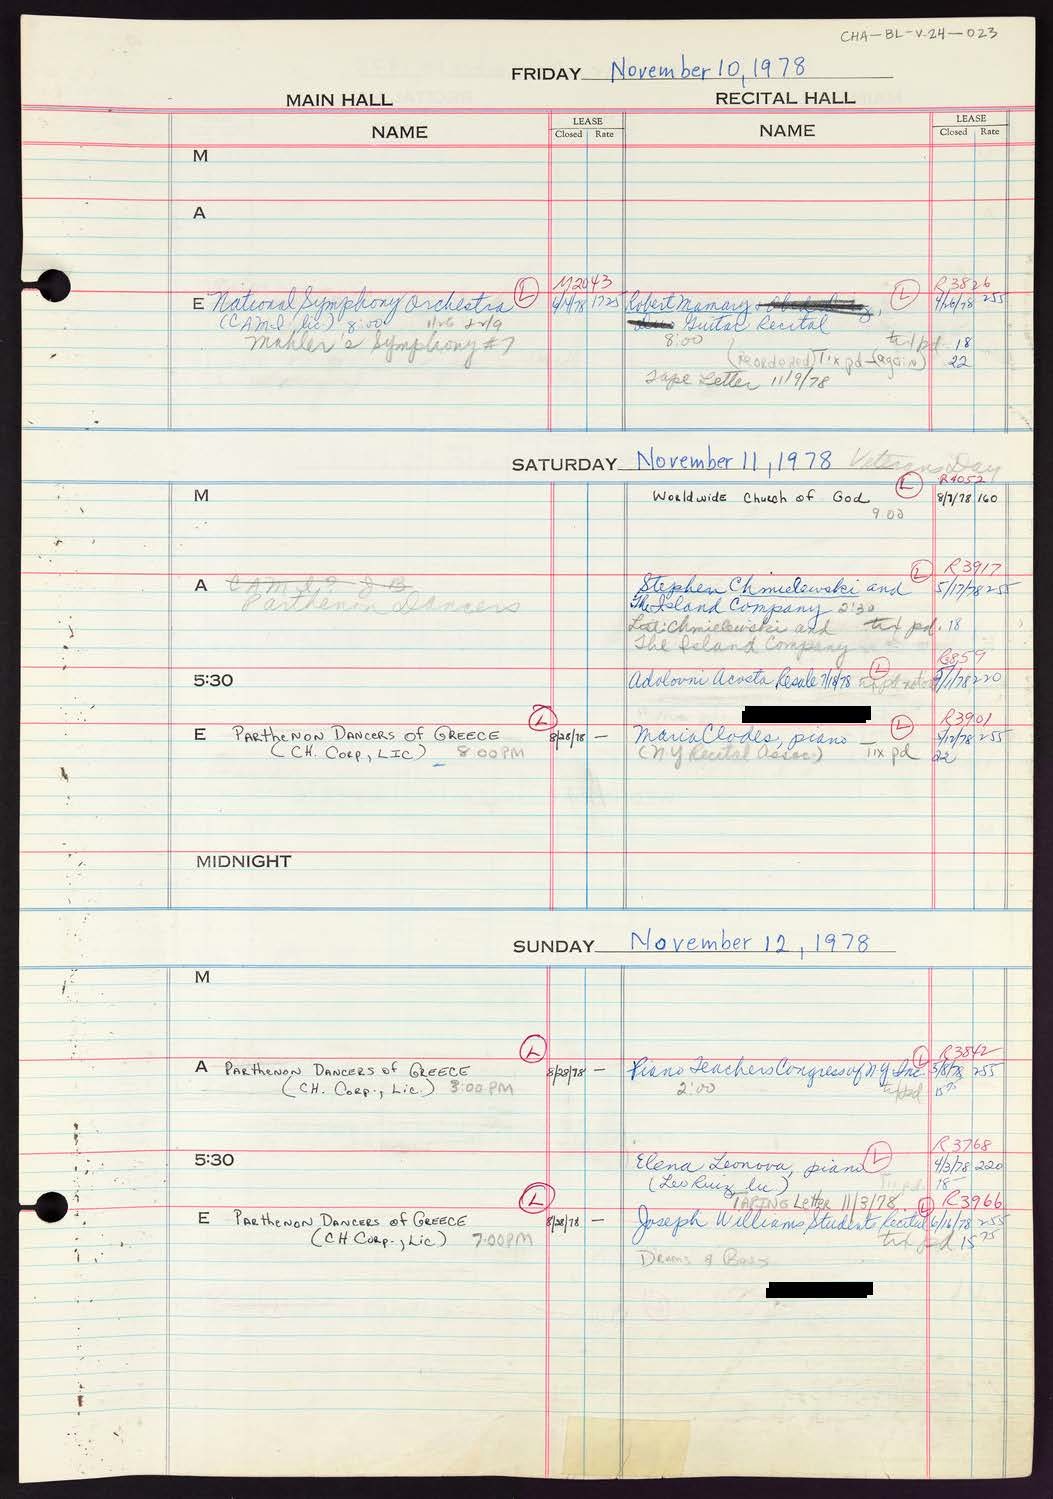 CHA-BL-V-24-023
FRIDAY November 10, 1978
MAIN HALL RECITAL HALL
NAME LEASE Closed Rate NAME LEASE Closed Rate
M
A
M2043 R3826
E National Symphony Orchestra L 1725 Robert Mamary L 4/26/78 255
8:00 Guitar Recital
Mahler's Symphony #7 8:00 pd 18
(reordered) Tix pd (again) 22
Tape Letter 11/9/78
SATURDAY November 11, 1978 Veterans Day
L R4052
M Worldwide Church of God 8/7/78 160
9:00
L R3917
A Stephen Chmielewski and 5/17/78 255
Parthenon Dancers The Island Company 2:30
List: Chmielewski and tix pd. 18
The Island Company
L R3859
5:30 Adolovni Acosta Resale 7/18/78 220
L L R3901
E Parthenon Dancers of Greece 8/28/78 — Maria Clodes, piano 5/12/78 255
(CH. Corp, Lic) 8:00 PM (NY Recital Assoc.) Tix pd 22
MIDNIGHT
SUNDAY November 12, 1978
M
L L R3842
A Parthenon Dancers of Greece — Piano Teachers Congress of NY Inc. 5/8/78 255
(CH. Corp., Lic.) 3:00 PM 2:00 tix pd
R3768
5:30 Elena Leonova, piano L 4/3/78 220
(Leo Ruiz, lic) Tix pd 18
L TAPING Letter 11/3/78 L R3966
E Parthenon Dancers of Greece 8/28/78 — Joseph Williams Student Recital 6/16/78 255
(CH Corp., Lic) 7:00 PM tix pd 15 75
Drums & Bass